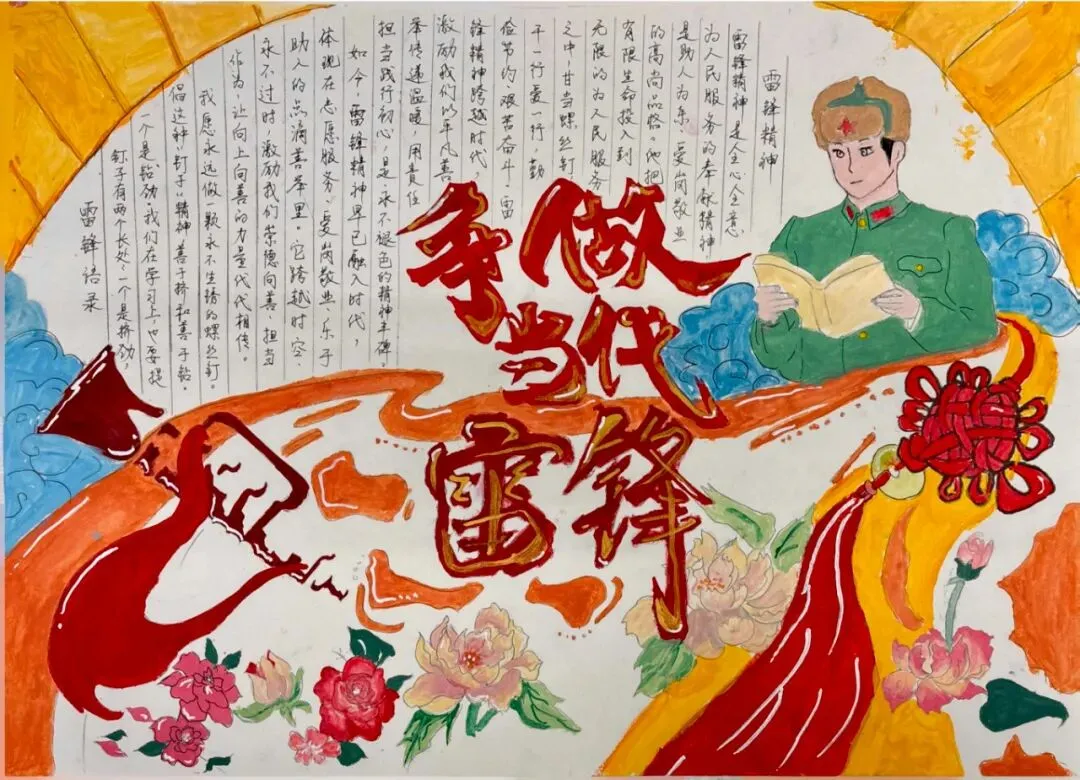 雷锋精神
雷锋精神是全心全意
为人民服务的奉献精神，
是助人为乐、爱岗敬业
的高尚品格。他把
有限生命投入到
无限的为人民服务
之中，甘当螺丝钉，
干一行爱一行，勤
俭节约、艰苦奋斗。雷
锋精神跨越时代，
激励我们以平凡善
举传递温暖，用责任
担当践行初心，是永不褪色的精神丰碑。
如今，雷锋精神早已融入时代，
体现在志愿服务、爱岗敬业、乐于
助人的点滴善举里。它跨越时空、
永不过时，激励我们崇德向善、担当
作为，让向上向善的力量代代相传。
雷锋语录
钉子有两个长处：一个是挤劲，
一个是钻劲。我们在学习上，也要提
倡这种“钉子”精神，善于挤和善于钻。
我愿永远做一颗永不生锈的螺丝钉。
争做
当代
雷锋